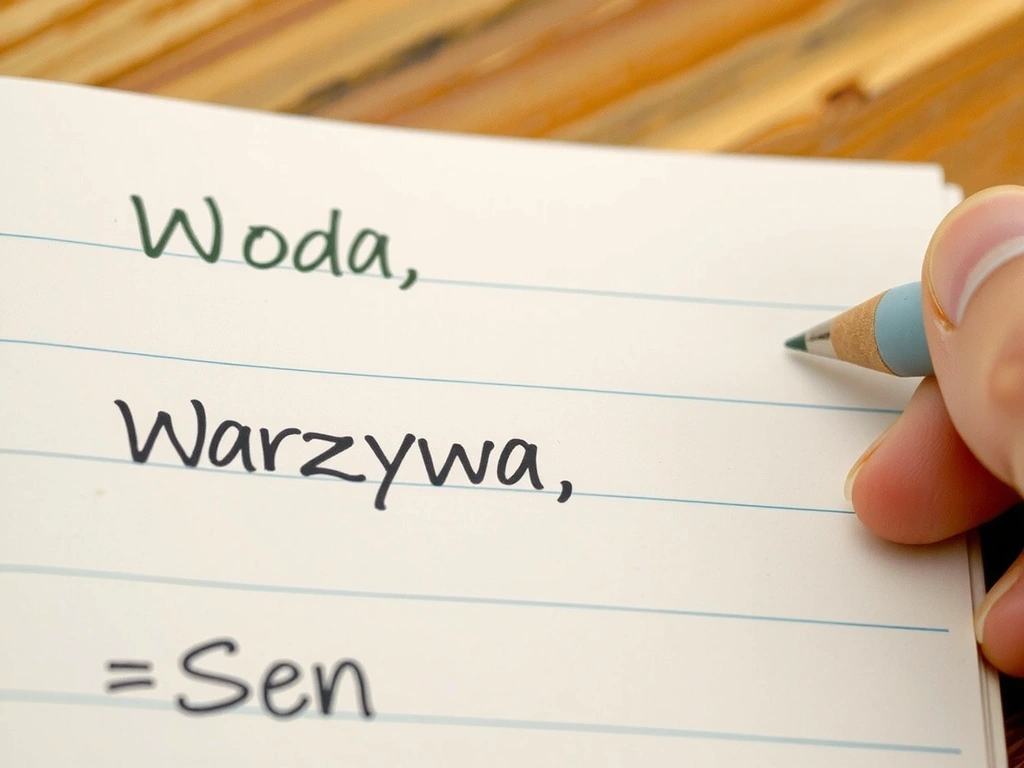 Woda,
Warzywa,
=Sen